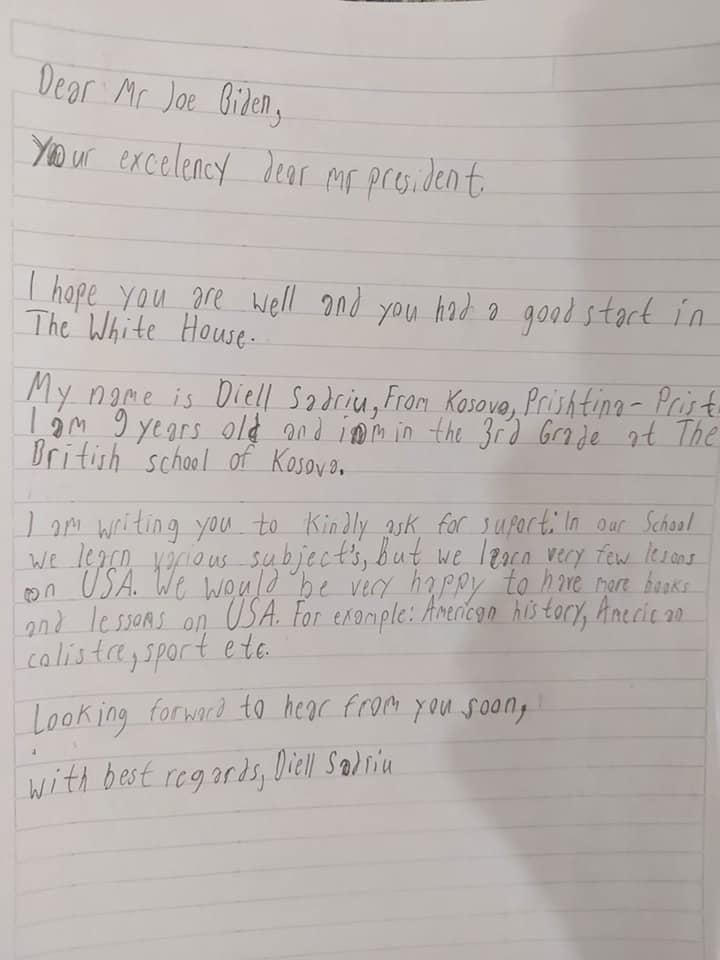 Dear Mr Joe Biden,
Your excelency dear mr president.
I hope you are well and you had a good start in
The White House.
My name is Diell Sadriu, From Kosovo, Prishtina - Prist
I am 9 years old and i am in the 3rd Grade at The
British school of Kosovo.
I am writing you to kindly ask for suport. In our School
we learn various subject's, but we learn very few lesons
on USA. We would be very happy to have more books
and lessons on USA. For example: American history, American
calistre, sport etc.
Looking forward to hear from you soon,
with best regards, Diell Sadriu